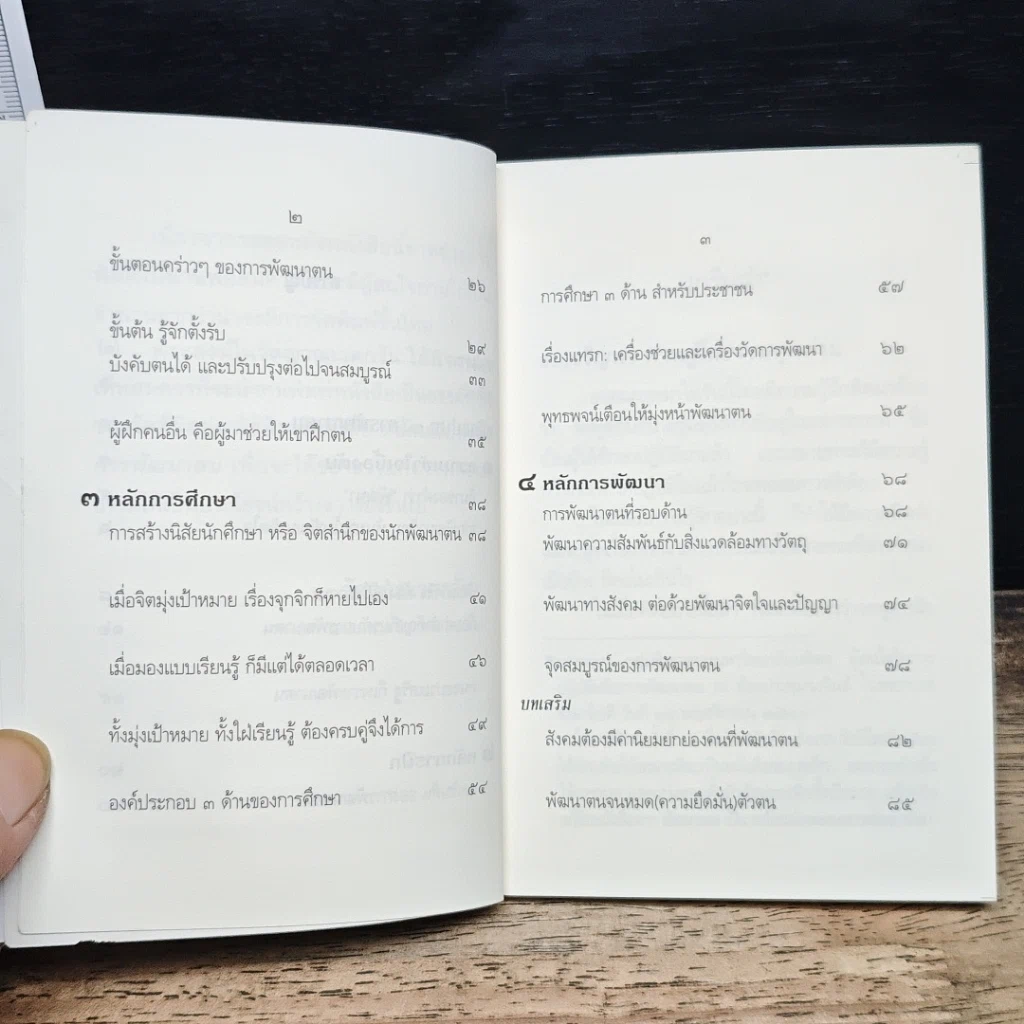 ๒
ขั้นตอนคร่าวๆ ของการพัฒนาตน ๒๖
ขั้นต้น รู้จักตั้งรับ ๒๙
บังคับตนได้ และปรับปรุงต่อไปจนสมบูรณ์ ๓๓
ผู้ฝึกคนอื่น คือผู้มาช่วยให้เขาฝึกตน ๓๕
๓ หลักการศึกษา ๓๘
การสร้างนิสัยนักศึกษา หรือ จิตสำนึกของนักพัฒนาตน ๓๘
เมื่อจิตมุ่งเป้าหมาย เรื่องจุกจิกก็หายไปเอง ๔๑
เมื่อมองแบบเรียนรู้ ก็มีแต่ได้ตลอดเวลา ๔๖
ทั้งมุ่งเป้าหมาย ทั้งใฝ่เรียนรู้ ต้องครบคู่จึงได้การ ๔๙
องค์ประกอบ ๓ ด้านของการศึกษา ๕๔
๓
การศึกษา ๓ ด้าน สำหรับประชาชน ๕๗
เรื่องแทรก: เครื่องช่วยและเครื่องวัดการพัฒนา ๖๒
พุทธพจน์เตือนให้มุ่งหน้าพัฒนาตน ๖๕
๔ หลักการพัฒนา ๖๘
การพัฒนาตนที่รอบด้าน ๖๘
พัฒนาความสัมพันธ์กับสิ่งแวดล้อมทางวัตถุ ๗๑
พัฒนาทางสังคม ต่อด้วยพัฒนาจิตใจและปัญญา ๗๔
จุดสมบูรณ์ของการพัฒนาตน ๗๘
บทเสริม
สังคมต้องมีค่านิยมยกย่องคนที่พัฒนาตน ๘๒
พัฒนาตนจนหมด(ความยึดมั่น)ตัวตน ๘๕